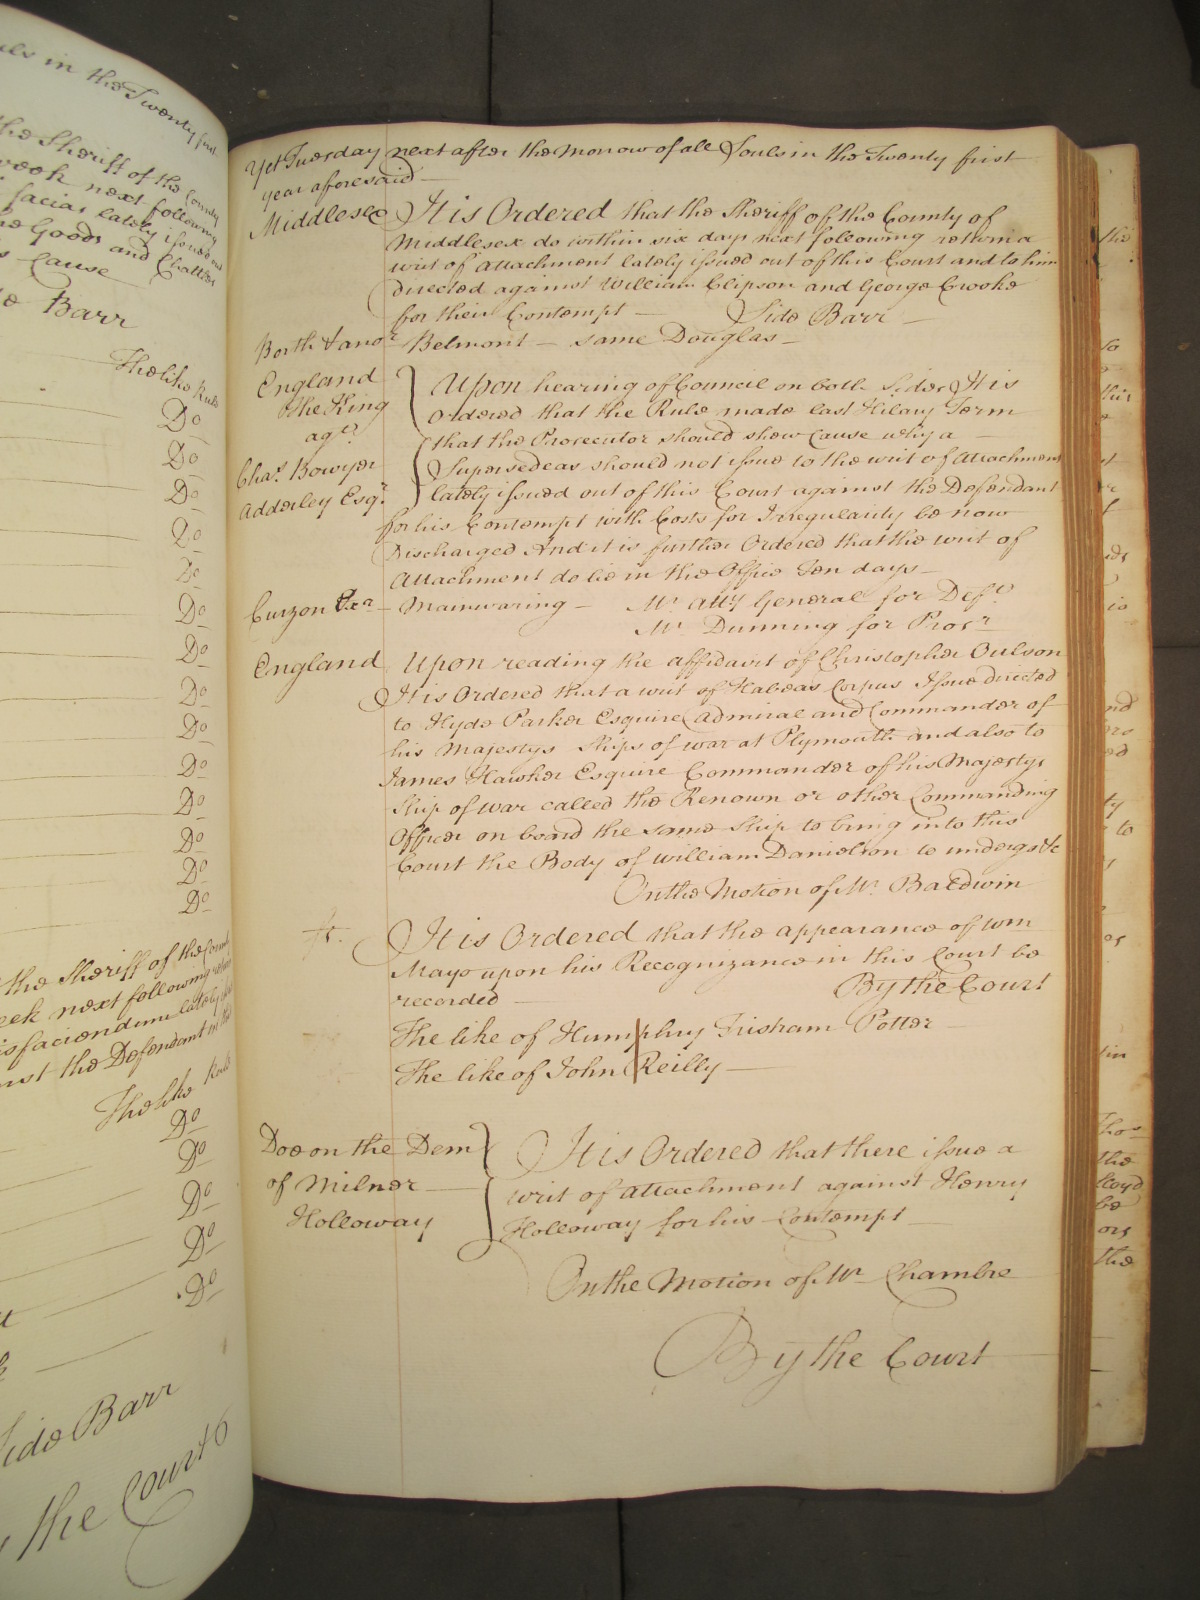 uls in the Twenty first
the Sheriff of the County
week next following
facias lately issued out
he Goods and Chattles
s Cause
de Barr
The like Rule
Do
Do
Do
Do
Do
Do
Do
Do
Do
Do
Do
Do
Do
Do
the Sheriff of the County
eek next following
isfaciendum lately
nst the Defendant in
The like Rule
Do
Do
Do
Do
Do
Side Barr
the Court
Yet Tuesday next after the morrow of all Souls in the Twenty first
year aforesaid
Middlesex It is Ordered that the Sheriff of the County of
Middlesex do within six days next following return a
writ of attachment lately issued out of this Court and to him
directed against William Clipson and George Crooke
for their Contempt — Side Barr —
Borth & anor Belmont — same Douglas —
England
the King
agt
Chas. Bowyer
Adderley Esqr.
Upon hearing of Council on both Sides It is
Ordered that the Rule made last Hilary Term
that the Prosecutor should show Cause why a
Supersedeas should not issue to the writ of Attachment
lately issued out of this Court against the Defendant
for his Contempt with Costs for Irregularity be now
Discharged And it is further Ordered that the writ of
Attachment do lie in the Office Ten days —
Curzon Mainwaring — Mr. Atty General for Deft
Mr. Dunning for Prosr
England Upon reading the affidavit of Christopher Oulson
It is Ordered that a writ of Habeas Corpus Issue directed
to Hyde Parker Esquire Admiral and Commander of
his Majestys Ships of war at Plymouth and also to
James Hawker Esquire Commander of his Majestys
Ship of war called the Renown or other Commanding
Officer on board the same Ship to bring into this
Court the Body of William Danielson to undergo &c
On the Motion of Mr. Baldwin
It is Ordered that the appearance of Wm
Mayo upon his Recognizance in this Court be
recorded — By the Court
The like of Humphry Frisham Potter
The like of John Reilly —
Doe on the Dem
of Milner
Holloway
It is Ordered that there issue a
writ of attachment against Henry
Holloway for his Contempt
On the Motion of Mr Chambre
By the Court